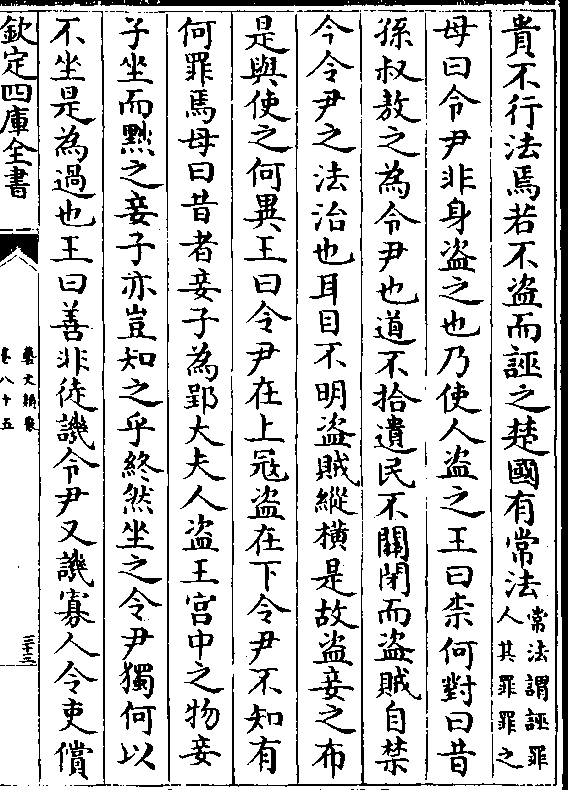 貴不行法焉若不盗而誣之楚國有常法常法謂誣罪人其罪罪之
母曰令尹非身盗之也乃使人盗之王曰柰何對曰昔
孫叔敖之為令尹也道不拾遺民不關閉而盗賊自禁
今令尹之法治也耳目不明盗賊縱横是故盗妾之布
是與使之何異王曰令尹在上冦盗在下令尹不知有
何罪焉母曰昔者妾子為郢大夫人盗王宫中之物妾
子坐而黜之妾子亦豈知之乎終然坐之令尹獨何以
不坐是為過也王曰善非徒譏令尹又譏寡人令吏償
欽定四庫全書
藝文類聚
卷八十五
三十三